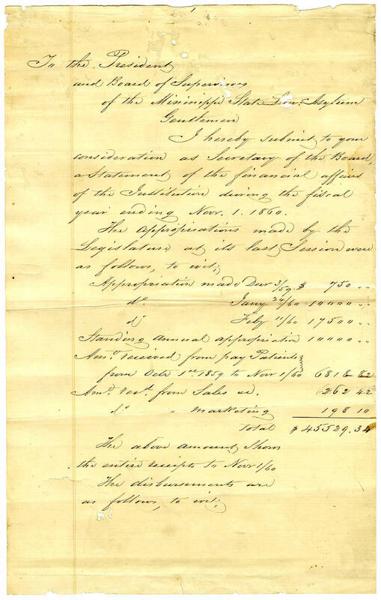 To the President
and Board of Supervisors
of the Mississippi State Asylum
Gentlemen
I hereby submit to your
consideration as Secretary of the Board,
a Statement of the financial affairs
of the Institution during the fiscal
year ending Nov. 1. 1860.
The Appropriations made by the
Legislature at its last Session were
as follows, to wit;
Appropriation made Decr 3/59 $ 750 ..
do Jany 10000 ..
do Feby 11/60 17500 ..
Standing annual appropriation 10000 ..
Amt received from pay Patients
from Octr 1st 1859 to Nov 1/60 6818 82
Amt recd. from Sales 262 42
do " marketing 198 10
Total $ 45529.34
The above amount, Shows
the entire receipts to Novr 1/60
The disbursements are
as follows, to wit;